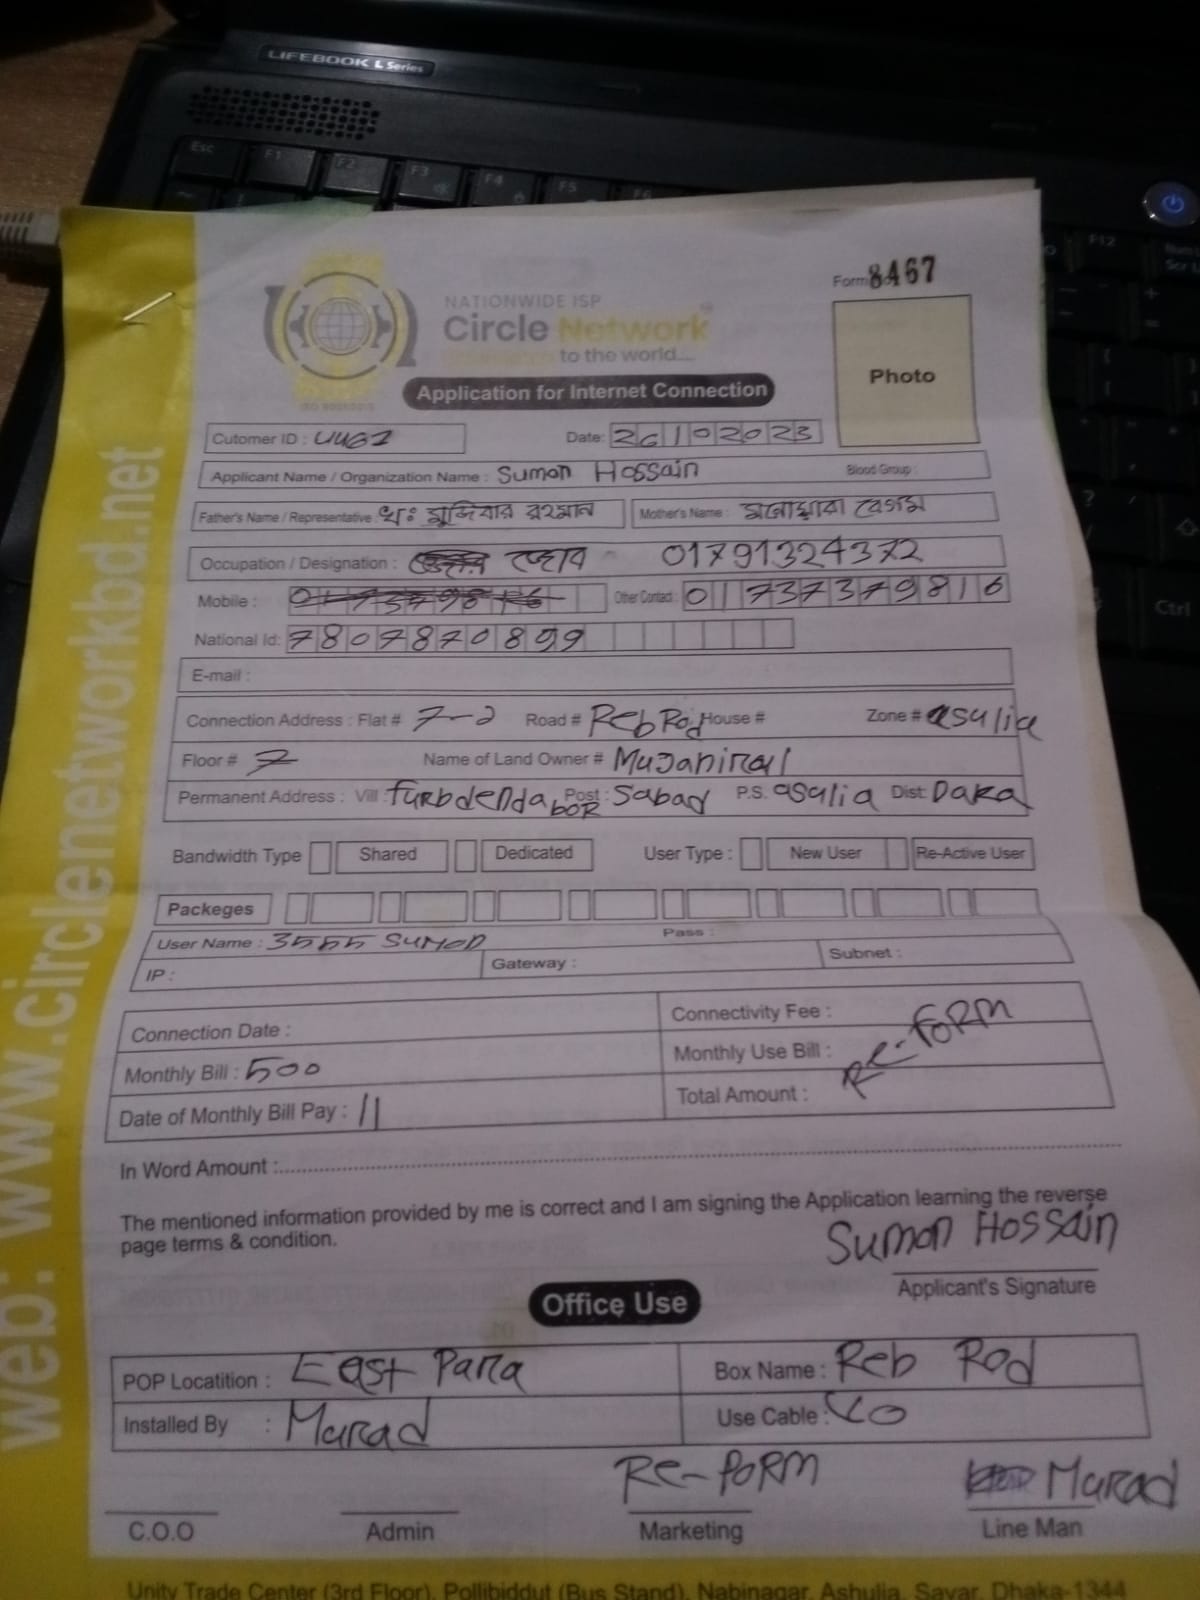 LIFEBOOK L Series
Esc F1 F2 F3 F4 F5 F6
F12
Ctrl
web: www.circlenetworkbd.net
Form 8467
NATIONWIDE ISP
Circle Network
to the world....
Photo
Application for Internet Connection
Cutomer ID : 4461 Date: 26102023
Applicant Name / Organization Name : Sumon Hossain Blood Group :
Father's Name / Representative : মুজিবার রহমান Mother's Name : মনোয়ারা বেগম
Occupation / Designation : 01791324372
Mobile : Other Contact : 01737379816
National Id: 7807870899
E-mail :
Connection Address : Flat # 7-2 Road # Reb Rod House # Zone # asulia
Floor # 7 Name of Land Owner #
Permanent Address : Vill : Post : P.S. asulia Dist: Daka
Bandwidth Type Shared Dedicated User Type : New User Re-Active User
Packeges
User Name : 3555 Sumon Pass :
IP : Gateway : Subnet :
Connection Date : Connectivity Fee :
Monthly Bill : 500 Monthly Use Bill : Re-form
Date of Monthly Bill Pay : 11 Total Amount :
In Word Amount :
The mentioned information provided by me is correct and I am signing the Application learning the reverse
page terms & condition.
Sumon Hossain
Applicant's Signature
Office Use
POP Locatition : East Para Box Name : Reb Rod
Installed By : Marad Use Cable :
Re-form Marad
C.O.O Admin Marketing Line Man
Unity Trade Center (3rd Floor), Pollibiddut (Bus Stand), Nabinagar, Ashulia, Savar, Dhaka-1344